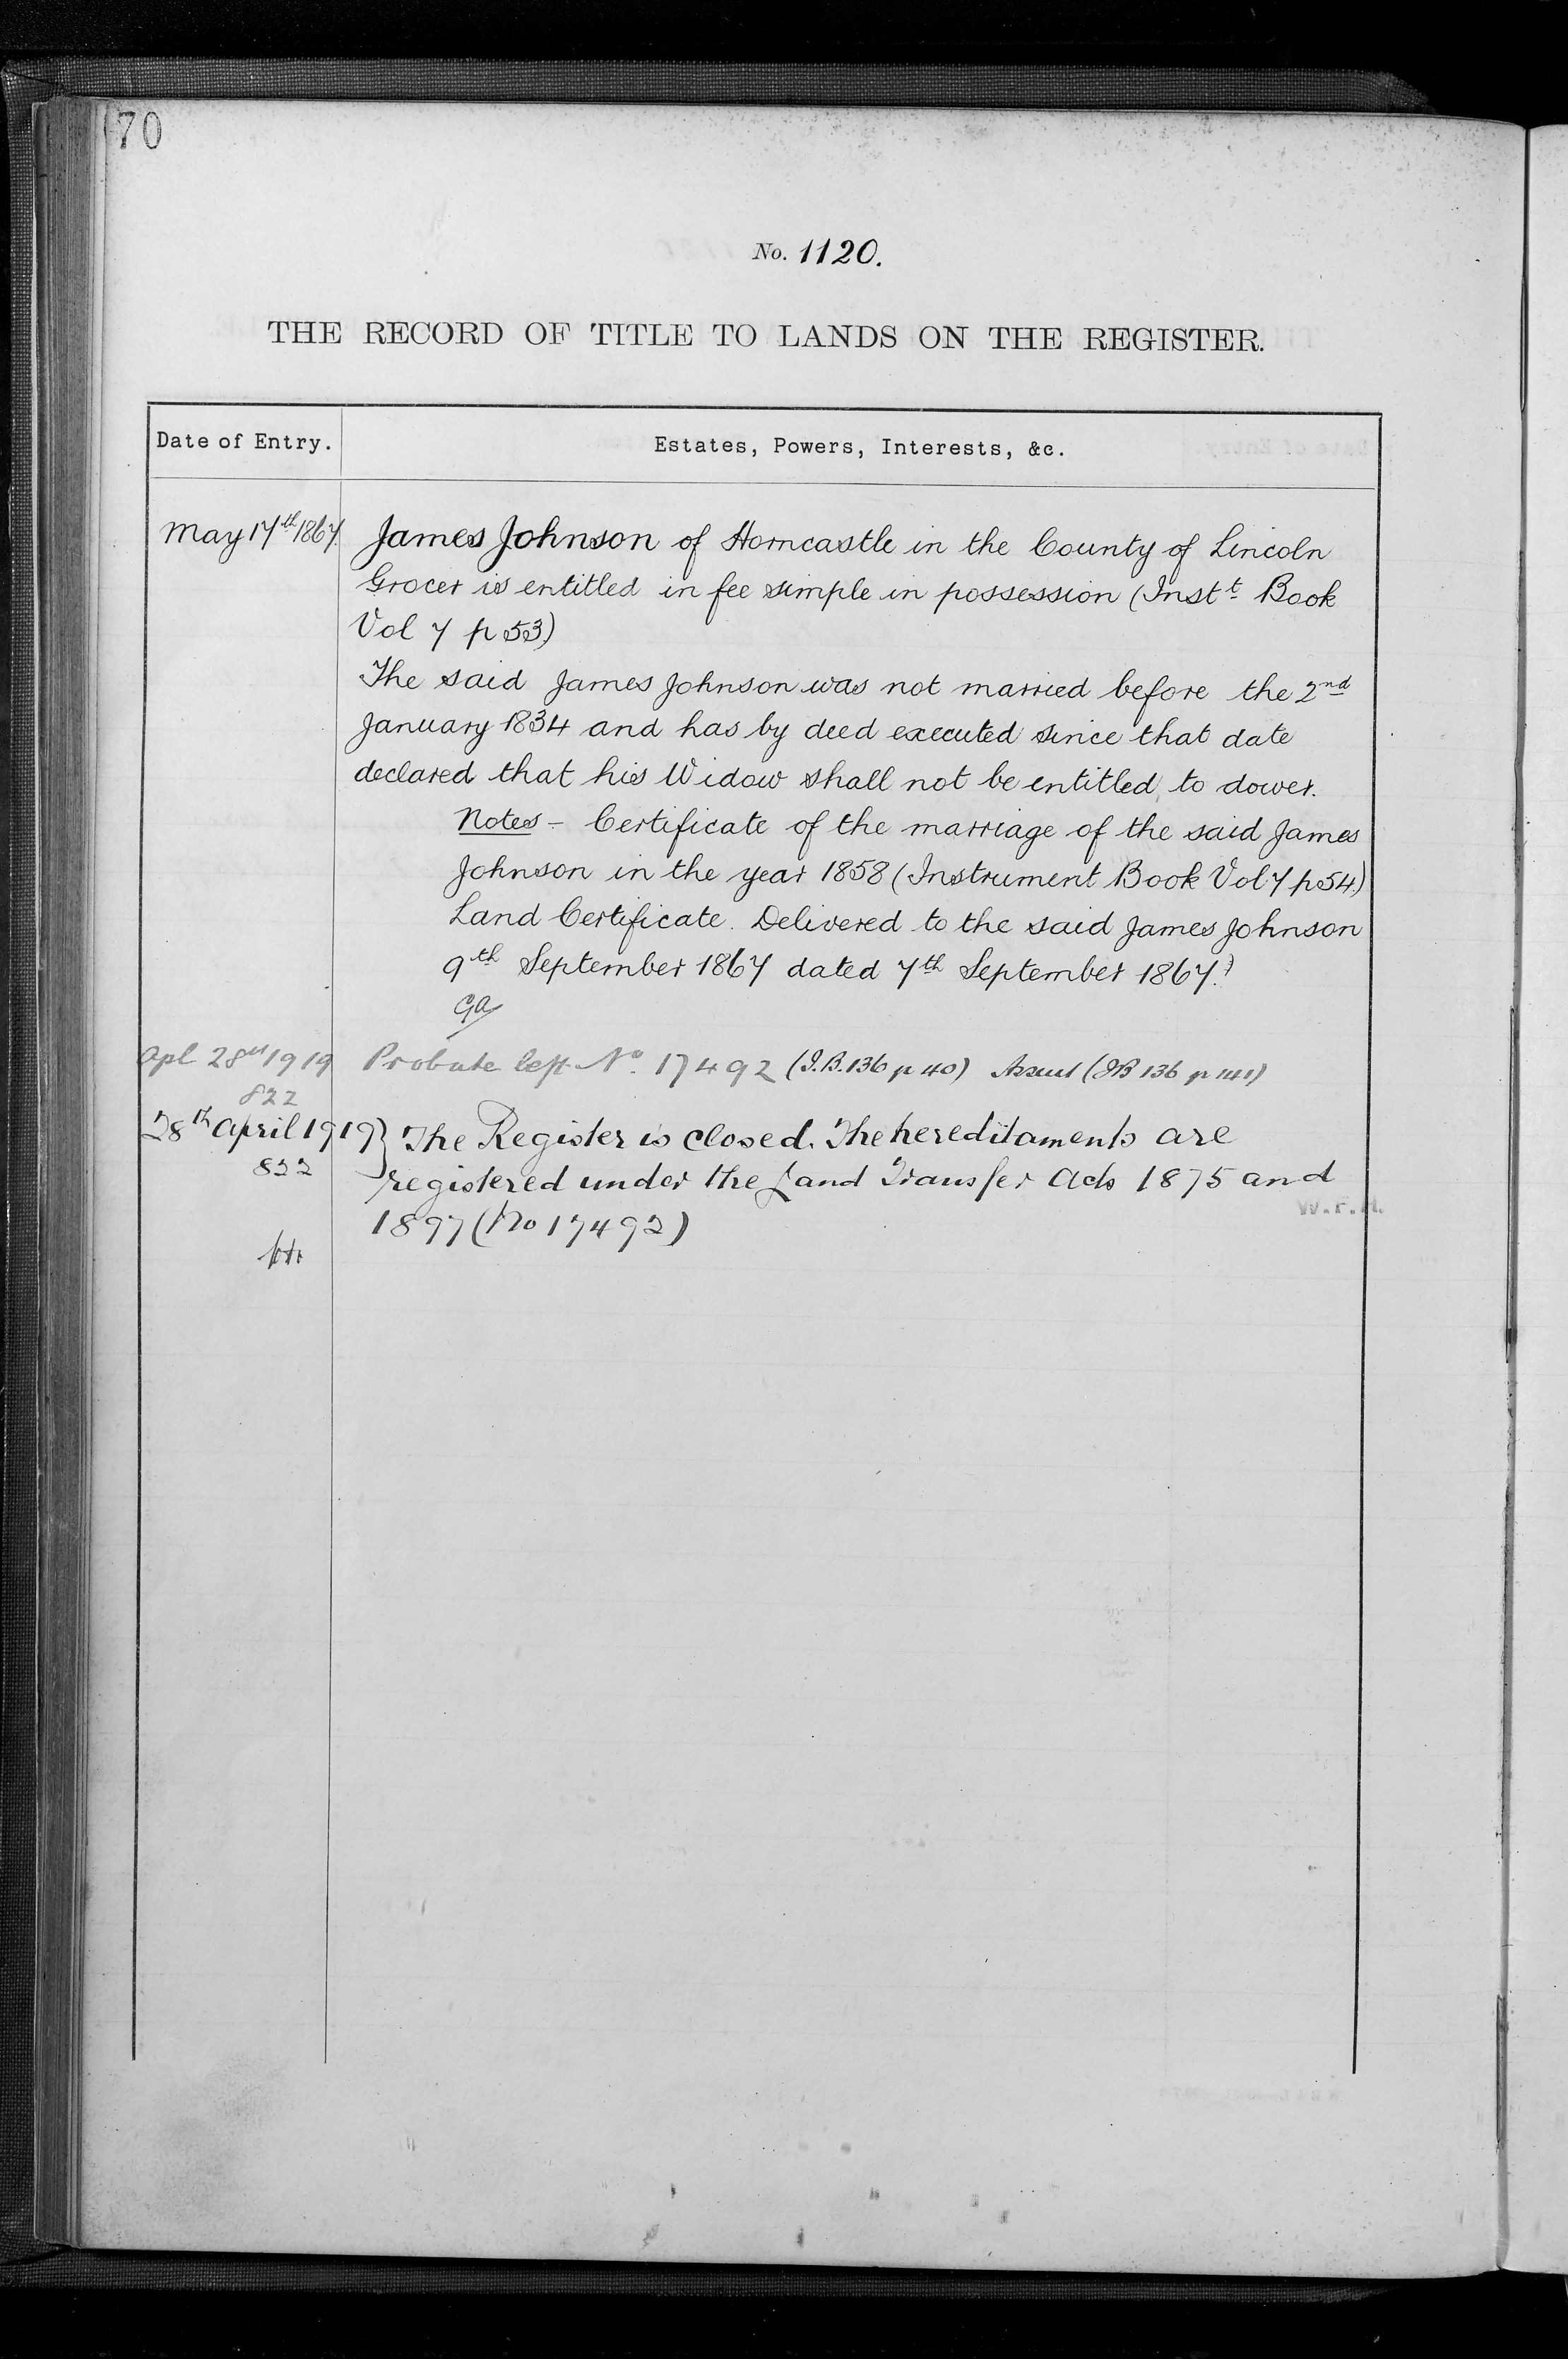 70
No. 1120.
THE RECORD OF TITLE TO LANDS ON THE REGISTER.
Date of Entry.
Estates, Powers, Interests, &c.
May 17th 1867.
James Johnson of Horncastle in the County of Lincoln
Grocer is entitled in fee simple in possession (Instt Book
Vol 7 p 53)
The said James Johnson was not married before the 2nd
January 1834 and has by deed executed since that date
declared that his Widow shall not be entitled to dower.
Notes - Certificate of the marriage of the said James
Johnson in the year 1858 (Instrument Book Vol 7 p 54)
Land Certificate. Delivered to the said James Johnson
9th September 1867 dated 7th September 1867.
Apl 28th 1919
Probate left No. 17492 (I.B. 136 p 40) Assent (IB 136 p 141)
822
28th April 1919} The Register is closed. The hereditaments are
822
registered under the Land Transfer Acts 1875 and
1897 (No 17492)